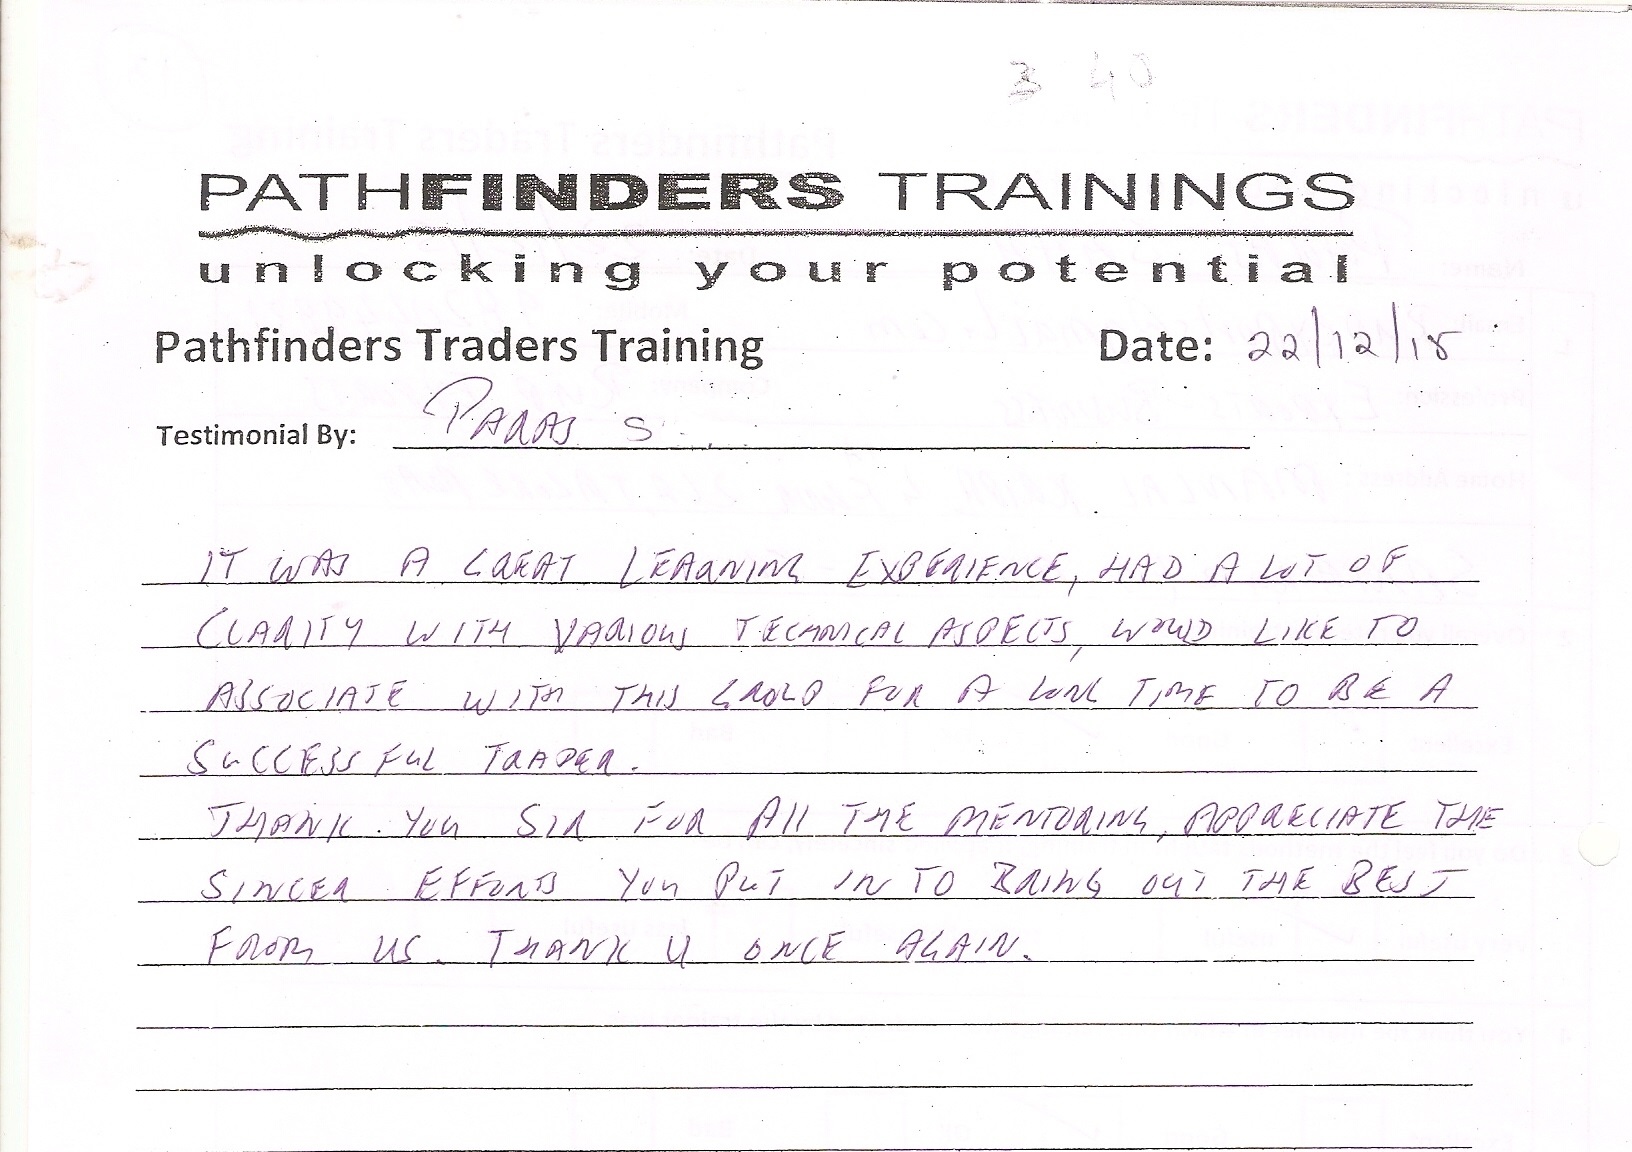 3 40
PATHFINDERS TRAININGS
unlocking your potential
Pathfinders Traders Training
Date: 22/12/15
Testimonial By: PARAS S
IT WAS A GREAT LEARNING EXPERIENCE, HAD A LOT OF
CLARITY WITH VARIOUS TECHNICAL ASPECTS, WOULD LIKE TO
ASSOCIATE WITH THIS GROUP FOR A LONG TIME TO BE A
SUCCESSFUL TRADER.
THANK YOU SIR FOR All THE MENTORING, APPRECIATE THE
SINCER EFFORTS YOU PUT IN TO BRING OUT THE BEST
FROM US. THANK U ONCE AGAIN.